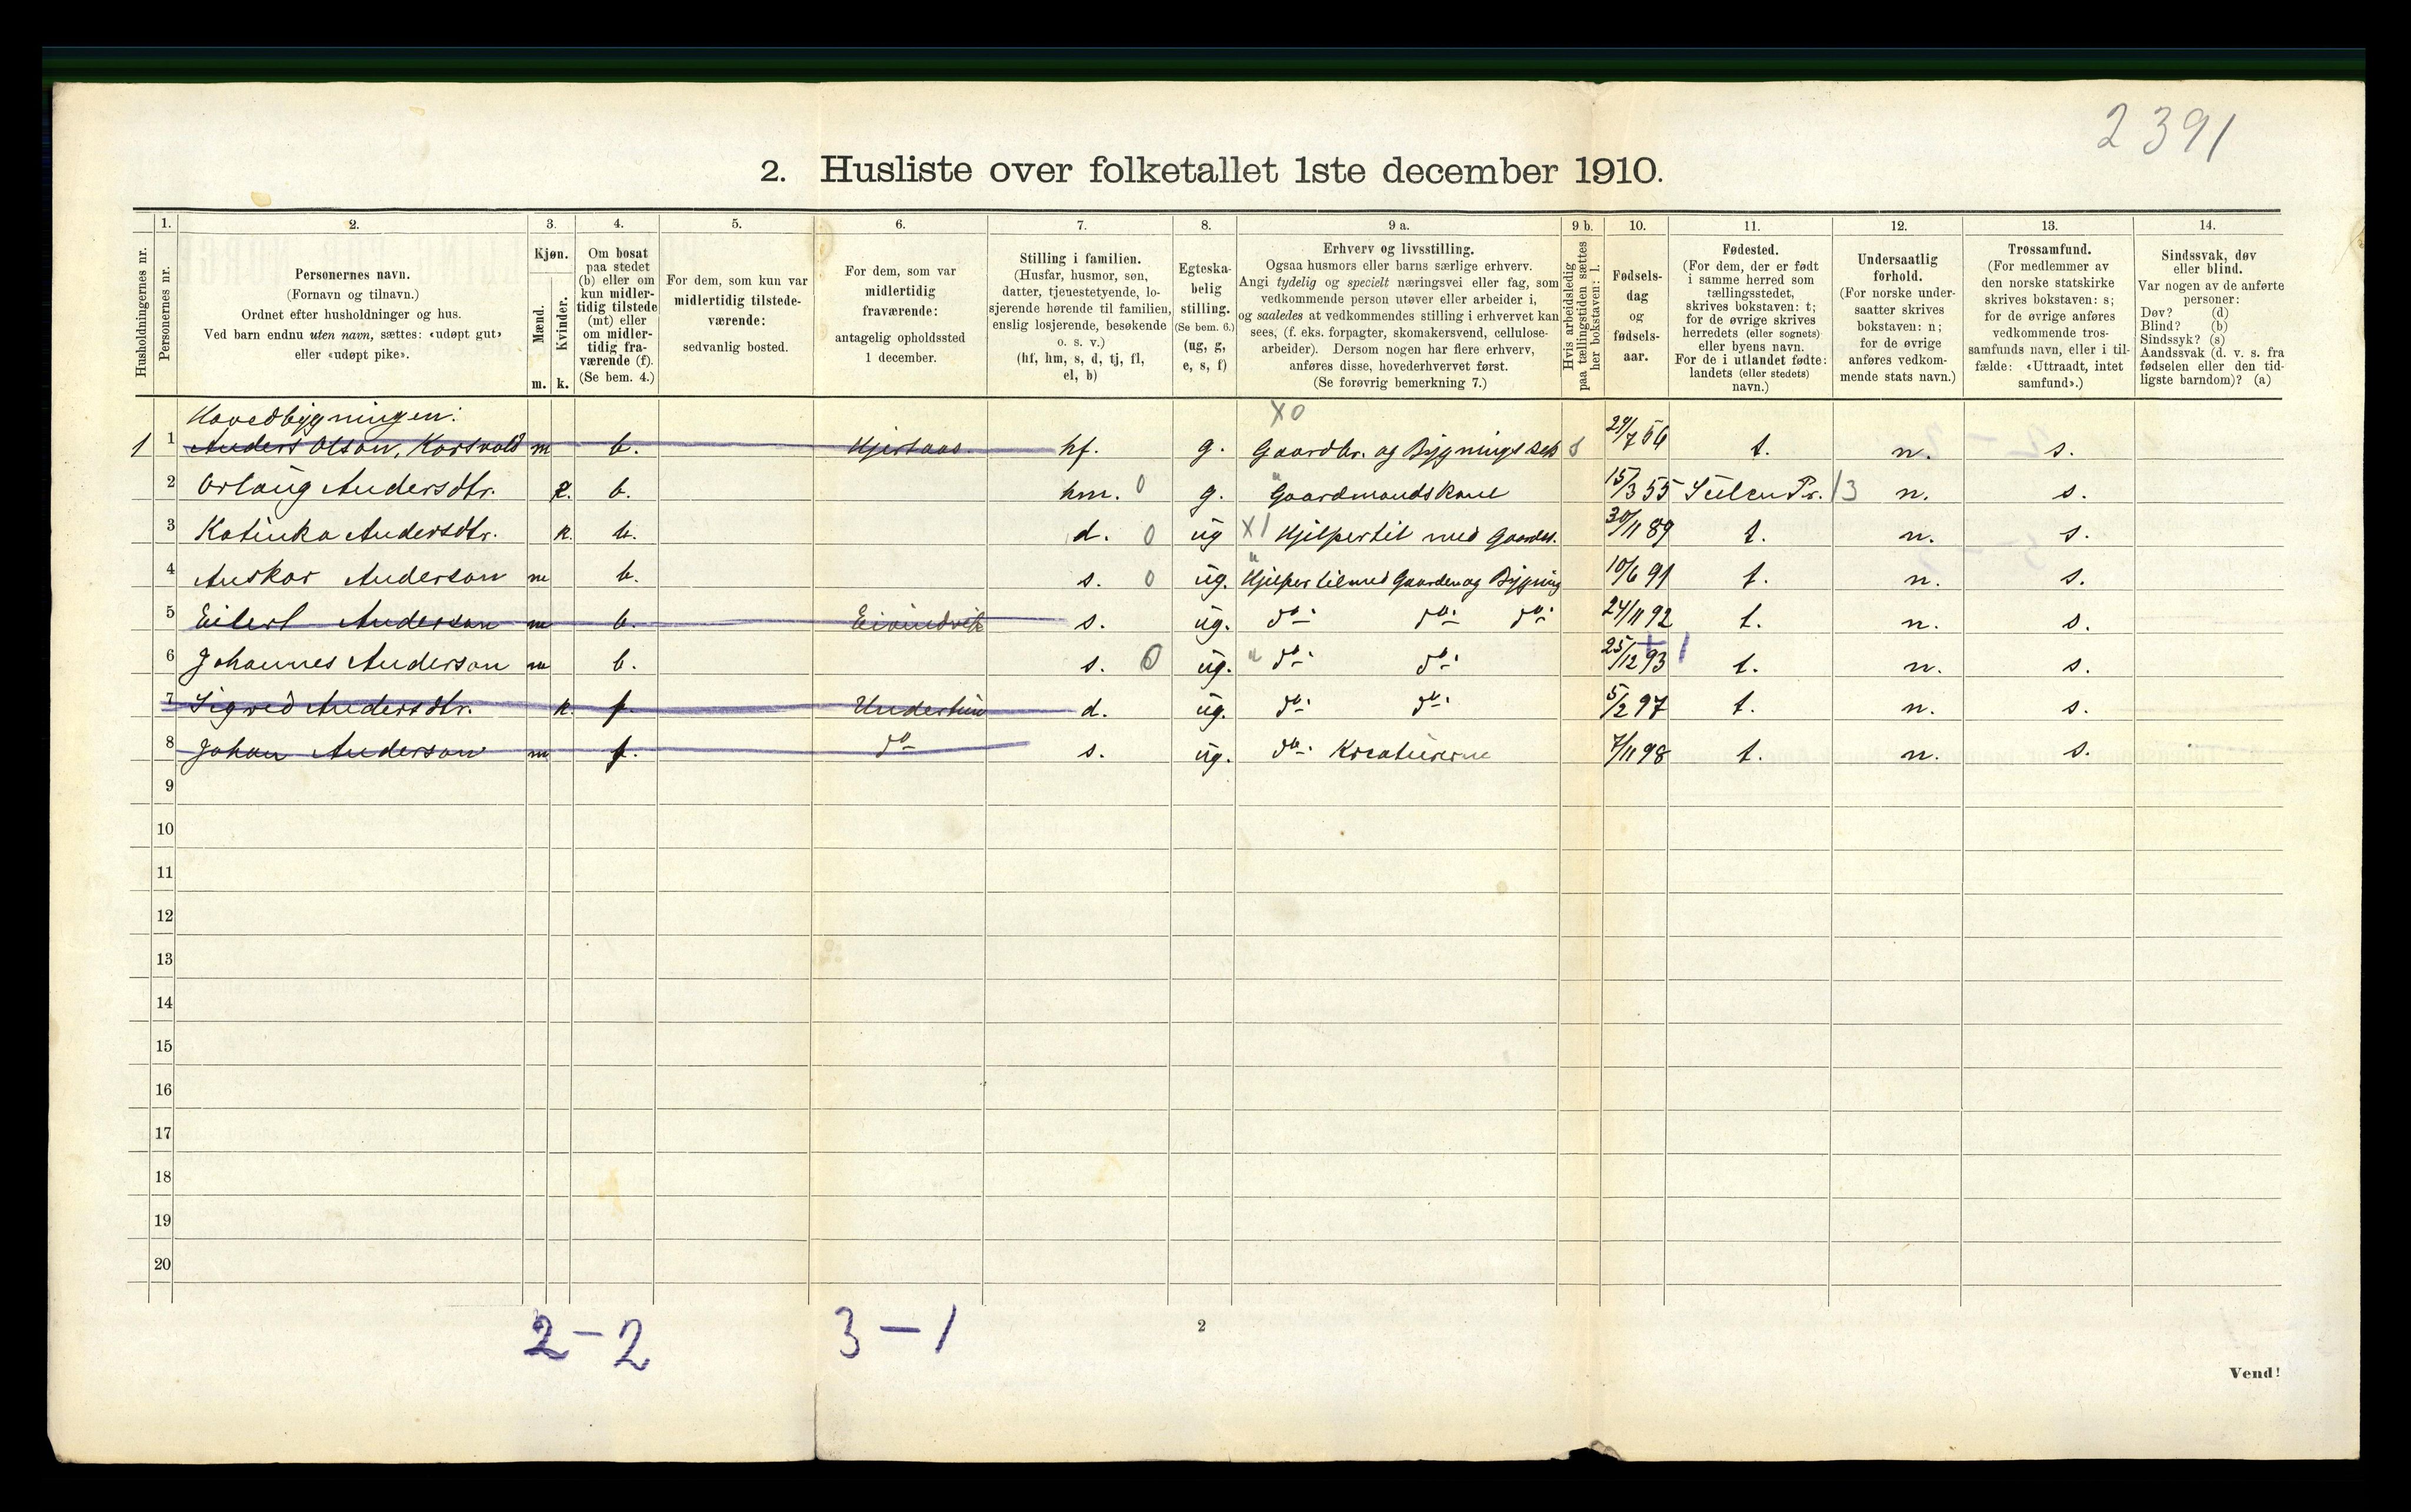 2391
2. Husliste over folketallet 1ste december 1910.
Husholdningernes nr.
1. Personernes nr.
2. Personernes navn. (Fornavn og tilnavn.) Ordnet efter husholdninger og hus. Ved barn endnu uten navn, sættes: «udøpt gut» eller «udøpt pike».
3. Kjøn. Mænd. m. Kvinder. k.
4. Om bosat paa stedet (b) eller om kun midlertidig tilstede (mt) eller om midlertidig fraværende (f). (Se bem. 4.)
5. For dem, som kun var midlertidig tilstedeværende: sedvanlig bosted.
6. For dem, som var midlertidig fraværende: antagelig opholdssted 1 december.
7. Stilling i familien. (Husfar, husmor, søn, datter, tjenestetyende, losjerende hørende til familien, enslig losjerende, besøkende o. s. v.) (hf, hm, s, d, tj, fl, el, b)
8. Egteskabelig stilling. (Se bem. 6.) (ug, g, e, s, f)
9 a. Erhverv og livsstilling. Ogsaa husmors eller barns særlige erhverv. Angi tydelig og specielt næringsvei eller fag, som vedkommende person utøver eller arbeider i, og saaledes at vedkommendes stilling i erhvervet kan sees, (f. eks. forpagter, skomakersvend, cellulosearbeider). Dersom nogen har flere erhverv, anføres disse, hovederhvervet først. (Se forøvrig bemerkning 7.)
9 b. Hvis arbeidsledig paa tællingstiden sættes her bokstaven: l.
10. Fødselsdag og fødselsaar.
11. Fødested. (For dem, der er født i samme herred som tællingsstedet, skrives bokstaven: t; for de øvrige skrives herredets (eller sognets) eller byens navn. For de i utlandet fødte: landets (eller stedets) navn.)
12. Undersaatlig forhold. (For norske undersaatter skrives bokstaven: n; for de øvrige anføres vedkommende stats navn.)
13. Trossamfund. (For medlemmer av den norske statskirke skrives bokstaven: s; for de øvrige anføres vedkommende trossamfunds navn, eller i tilfælde: «Uttraadt, intet samfund».)
14. Sindssvak, døv eller blind. Var nogen av de anførte personer: Døv? (d) Blind? (b) Sindssyk? (s) Aandssvak (d. v. s. fra fødselen eller den tidligste barndom)? (a)
Hovedbygningen: X0
1 1 Anders Olson, Korsvold m b. hf. g. Gaardbr. og Bygnings 29/7 56 t. n. s.
2 Orlaug Andersdtr. k. b. hm. 0 g. " Gaardmandskone 15/3 55 Sulen Pr. 13 n. s.
3 Katinka Andersdtr. k. b. d. 0 ug X1 Hjelper til med Gaarden. 30/11 89 t. n. s.
4 Anskar Anderson m b. s. 0 ug. " Hjelper til med Gaarden og Bygning 10/6 91 t. n. s.
5 Eilert Anderson m b. Eivindvik s. ug. do. do. do. 24/11 92 t. n. s.
6 Johannes Anderson m b. s. 0 ug. " do. do. 25/12 93 + 1 t. n. s.
7 Sigred Andersdtr. k. f. d. ug. do. do. 5/2 97 t. n. s.
8 Johan Anderson m f. do s. ug. do. Kreaturerne 7/11 98 t. n. s.
9
10
11
12
13
14
15
16
17
18
19
20
2-2 3-1
2
Vend!